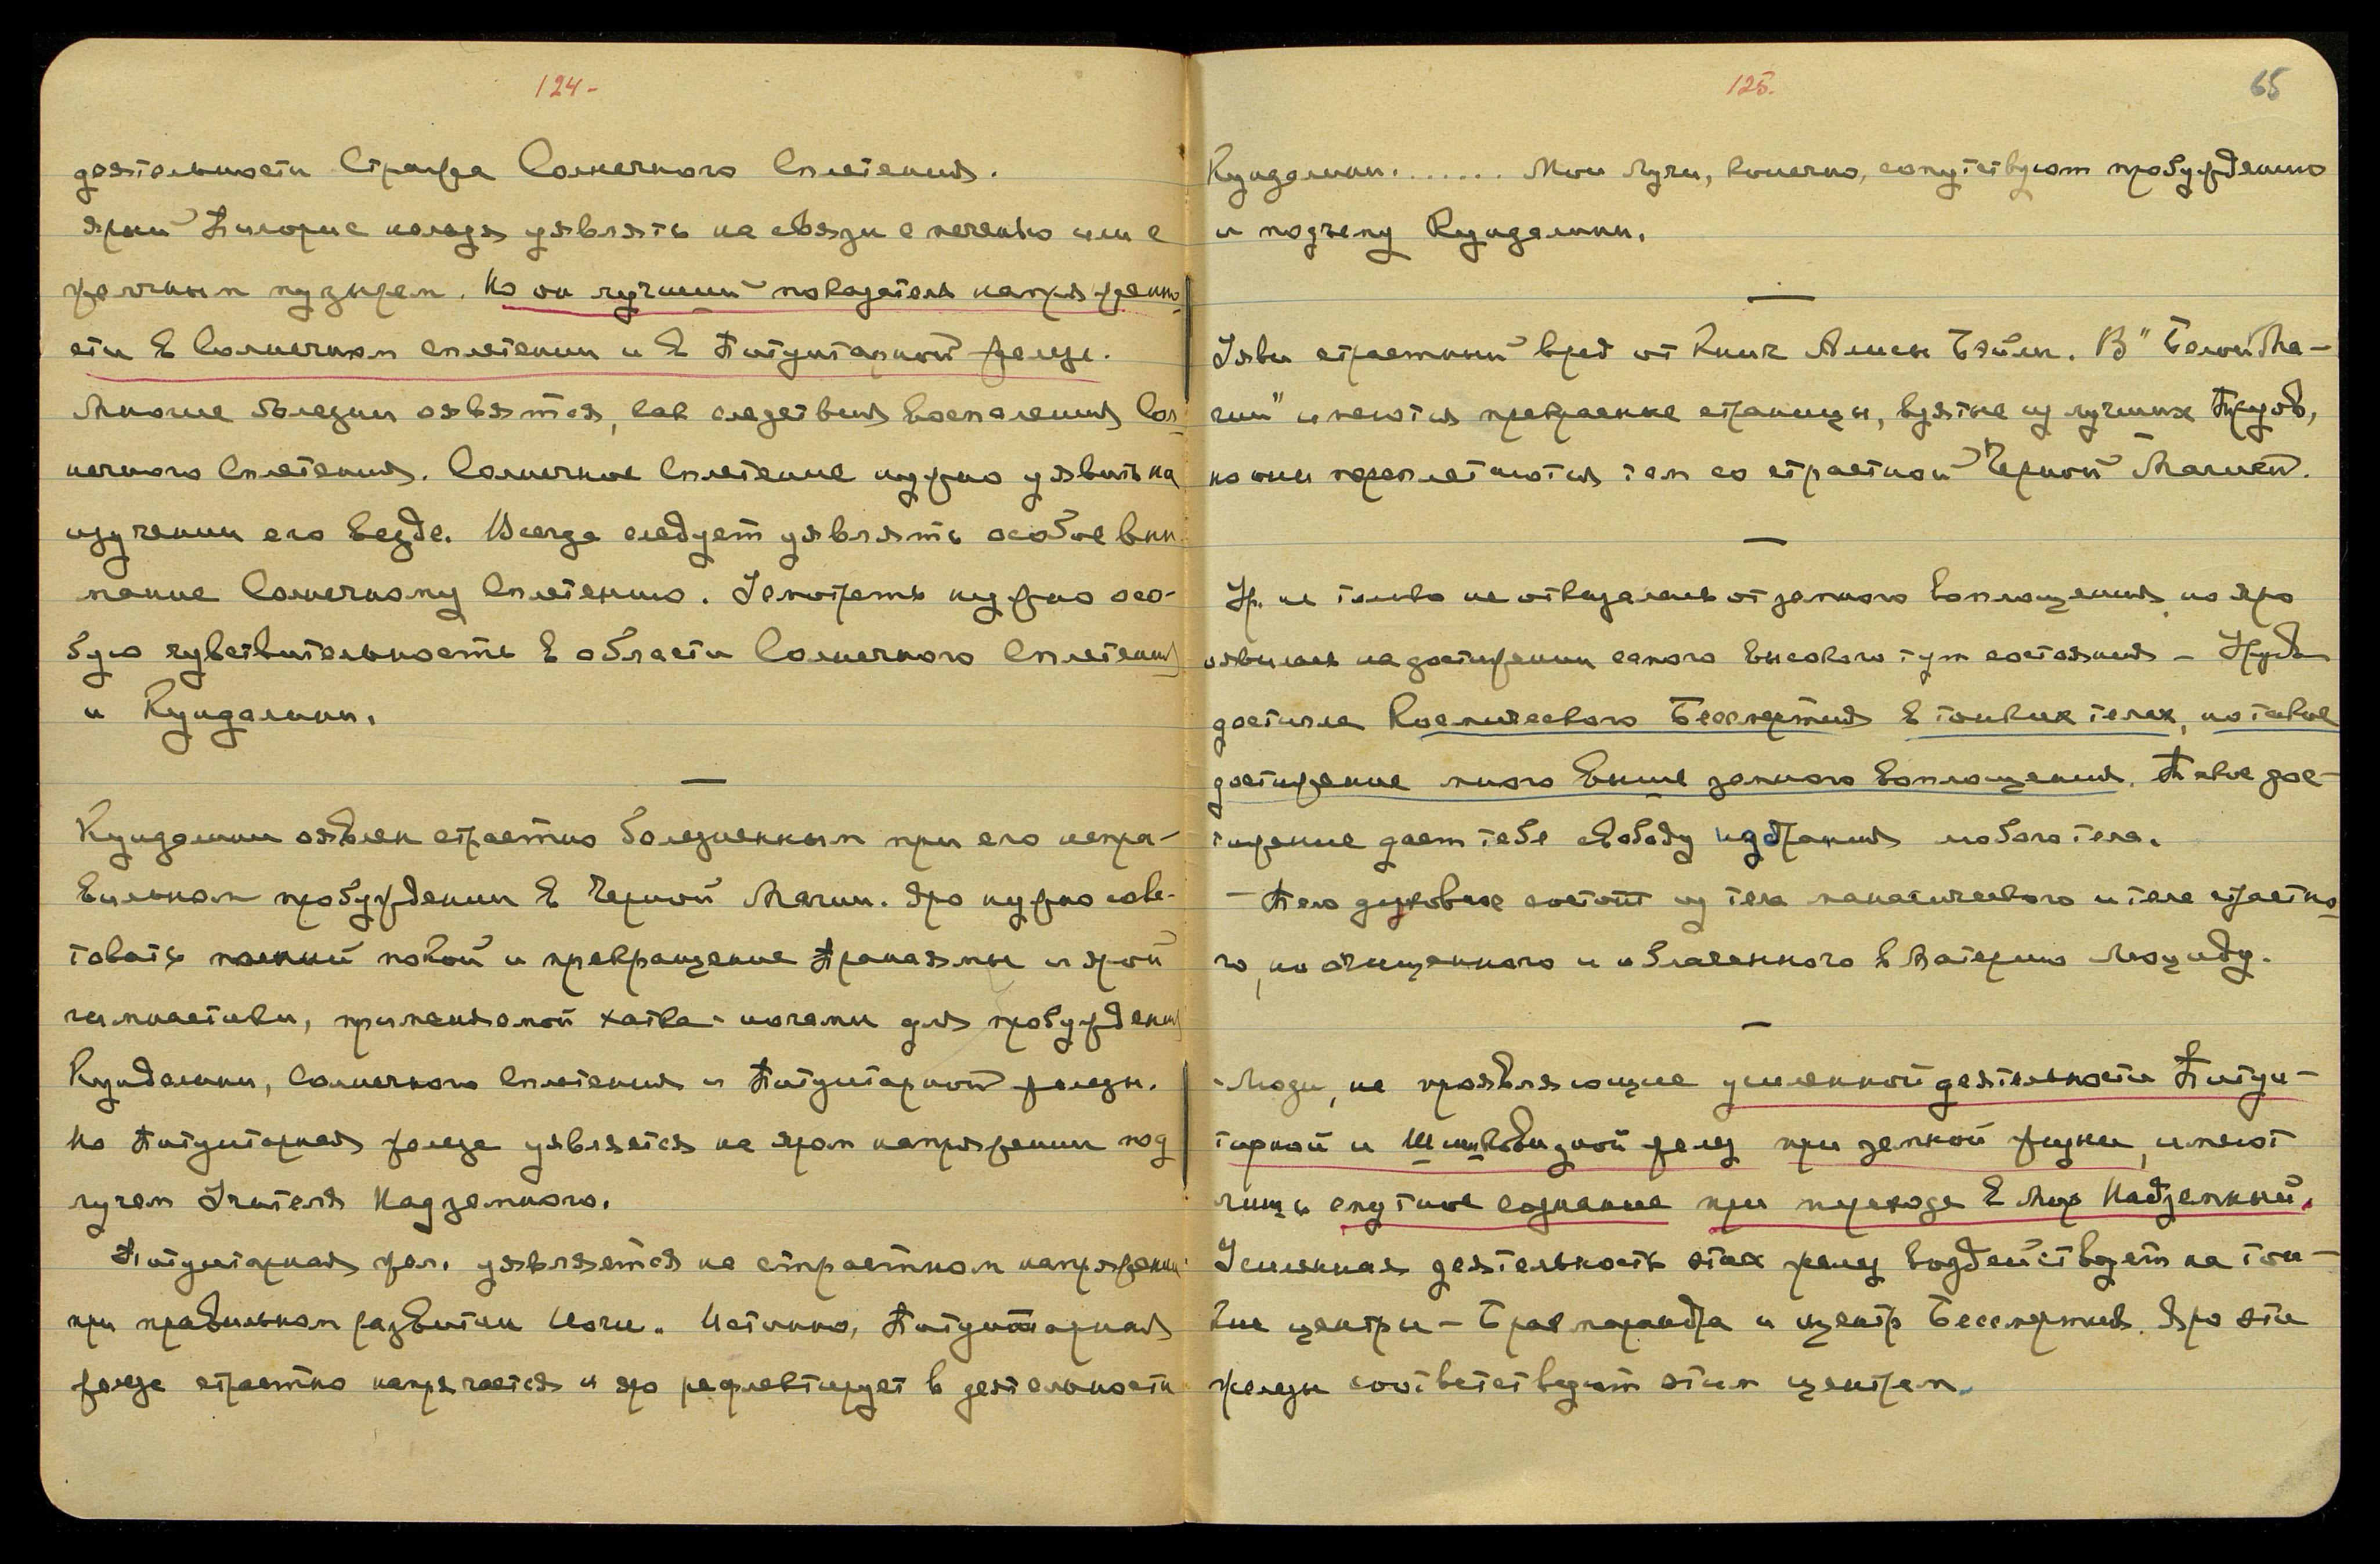 124-
деятельности Стража Солнечного Сплетения.
ярый Пилорус нельзя уявлять на связи с печенью или с
желчным пузырем. Но он лучший показатель напряженно-
сти в Солнечном сплетении и в Питуитарной железе.
Многие болезни оявятся, как следствия воспаления Сол-
нечного Сплетения. Солнечное Сплетение нужно уявить на
изучении его везде. Всегда следует уявлять особое вни-
мание Солнечному Сплетению. Усмотреть нужно осо-
бую чувствительность в области Солнечного Сплетения
и Кундалини.
Кундалини оявлен страстно болезненным при его непра-
вильном пробуждении в Черной Магии. Яро нужно сове-
товать полный покой и прекращение Пранаямы и ярой
гимнастики, применяемой хатха-йогами для пробуждения
Кундалини, Солнечного Сплетения и Питуитарной железы.
Но Питуитарная железа уявляется на яром напряжении под
лучем Учителя Надземного.
Питуитарная жел. уявляется на страстном напряжении
при правильном развитии Йоги. Истинно, Питуитарная
железа страстно напрягается и яро рефлектирует в деятельности
125.
65
Кундалини. . . . . . . Мои Лучи, конечно, сопутствуют пробуждению
и подъему Кундалини.
Уяви страстный вред от Книг Алисы Бэйли. В "Белой Ма-
гии" имеются прекрасные страницы, взятые из лучших Трудов,
но они переплетаются там со страстной Черной Магией.
Ур. не только не отказалась от земного воплощения, но яро
оявилась на достижении самого высокого тут состояния - Уруда
достигла Космического Бессмертия в тонких телах, но такое
достижение много выше земного воплощения. Такое дос-
тижение дает тебе свободу избрания любого тела.
- Тело духовное состоит из тела манасического и тела страстно-
го, но очищенного и облаченного в Материю Люциду.
Люди, не проявляющие усиленной деятельности Питуи-
тарной и Шишковидной желез при земной жизни, имеют
лишь смутное сознание при переходе в Мир Надземный.
Усиленная деятельность этих желез воздействует на тон-
кие центры - Брамарандра и центр Бессмертия. Яро эти
железы соответствуют этим центрам.